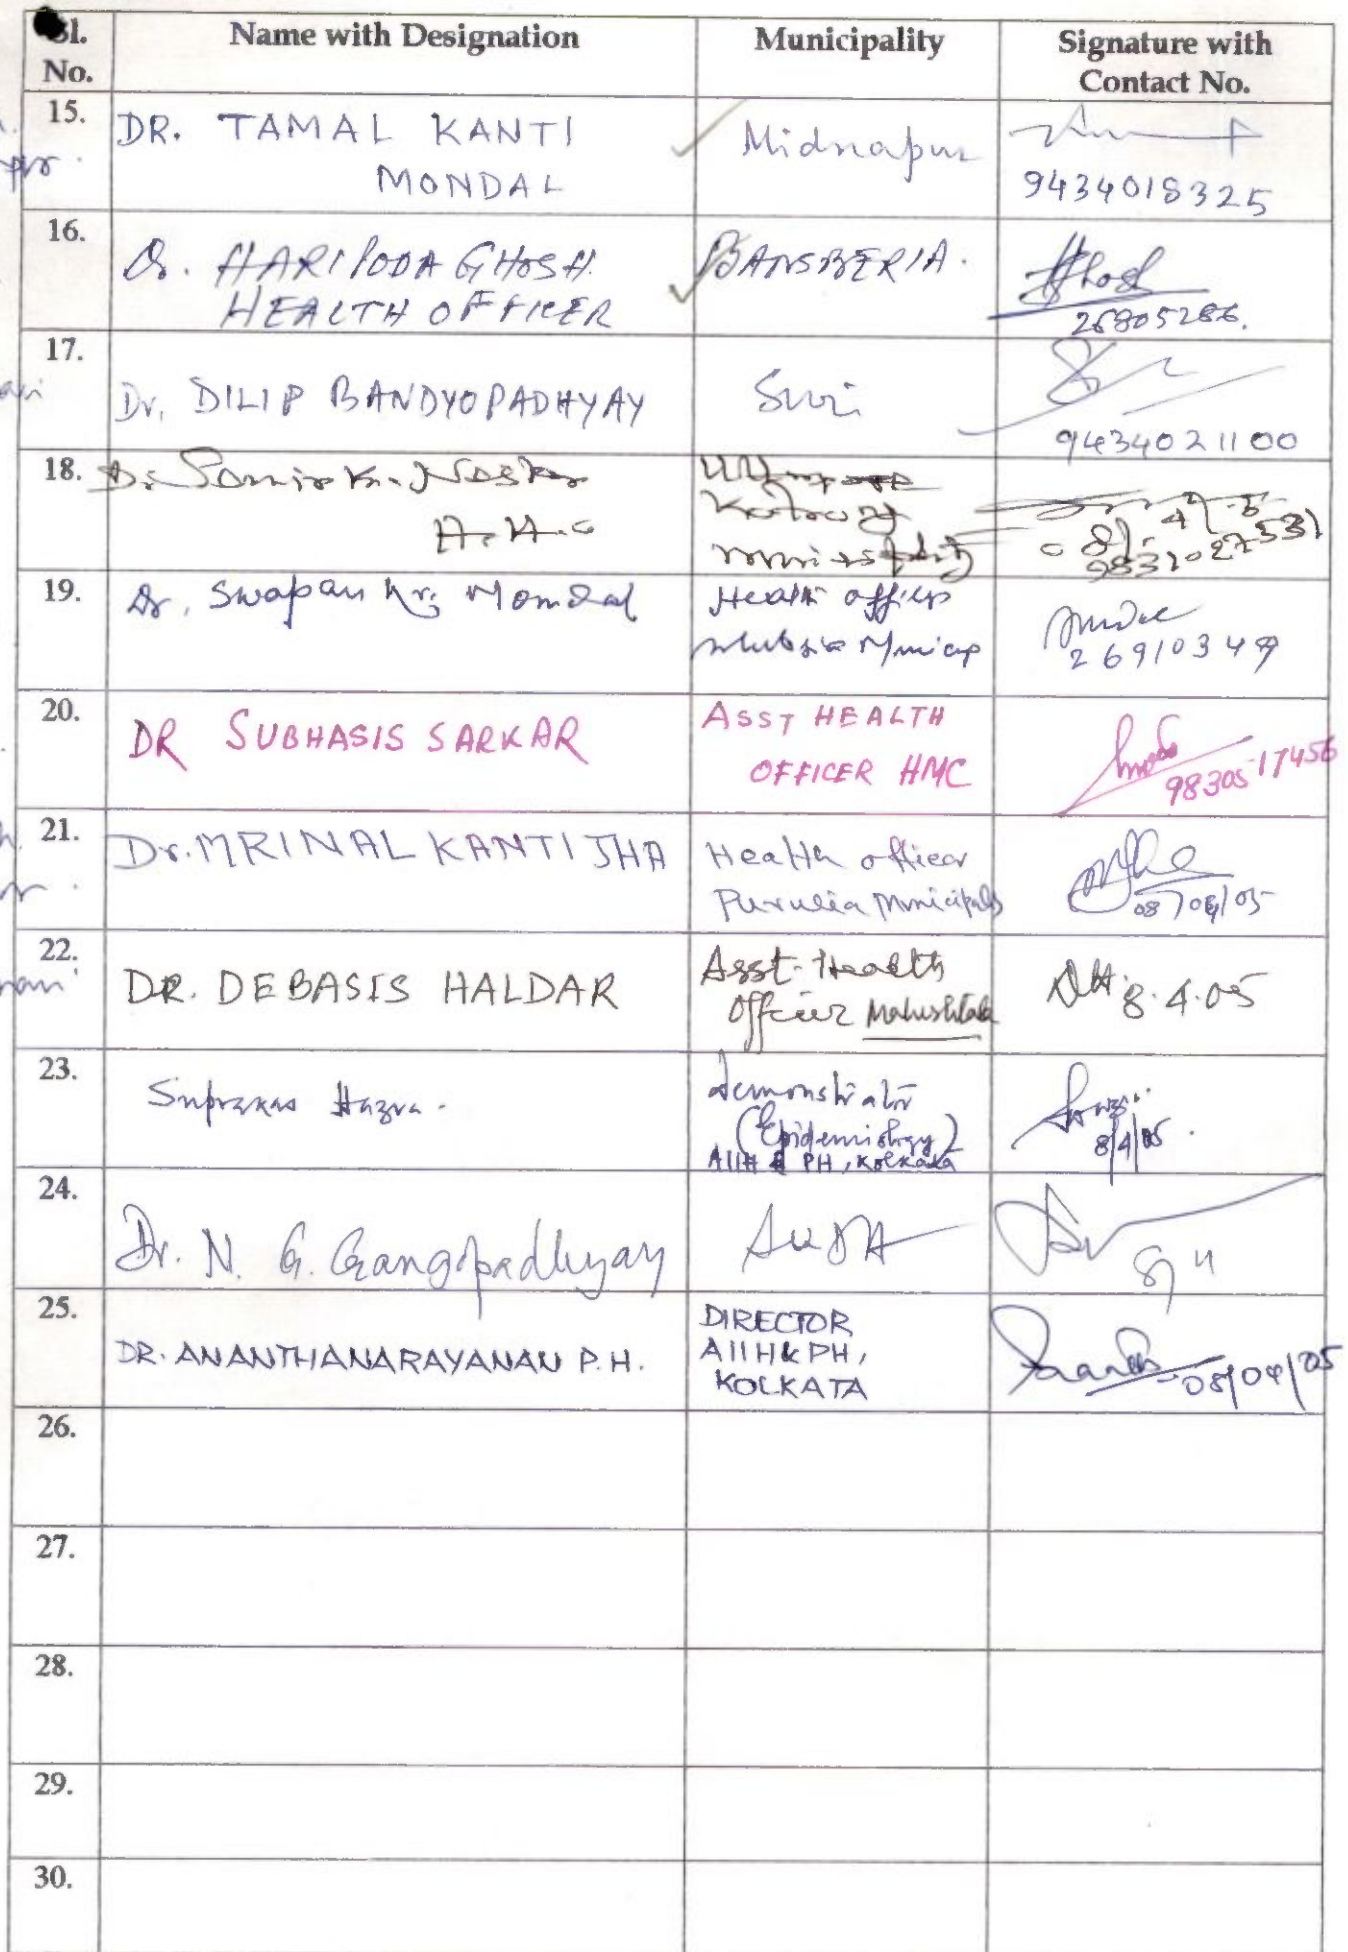 Sl. No.
Name with Designation
Municipality
Signature with Contact No.
15.
DR. TAMAL KANTI
MONDAL
Midnapur
9434018325
16.
Dr. HARIPODA GHOSH.
HEALTH OFFICER
BANSBERIA.
Ghosh
26805286.
17.
Dr. DILIP BANDYOPADHYAY
Suri
9434021100
18.
Dr. Samir Kr. Naskar
A.H.O
9831027531
19.
Dr. Swapan Kr. Mondal
Health officer
26910349
20.
DR SUBHASIS SARKAR
ASST HEALTH
OFFICER HMC
98305 17456
21.
Dr. MRINAL KANTI JHA
Health officer
Purulia Municipality
08/04/05
22.
DR. DEBASIS HALDAR
Asst. Health
Officer Maheshtala
DH. 8.4.05
23.
Suprakas Hazra.
demonstrator
(Epidemiology)
AIIH & PH, Kolkata
8/4/05.
24.
Dr. N. G. Gangopadhyay
SUDA
8/4
25.
DR. ANANTHANARAYANAN P.H.
DIRECTOR
AIIH&PH,
KOLKATA
08/04/05
26.
27.
28.
29.
30.